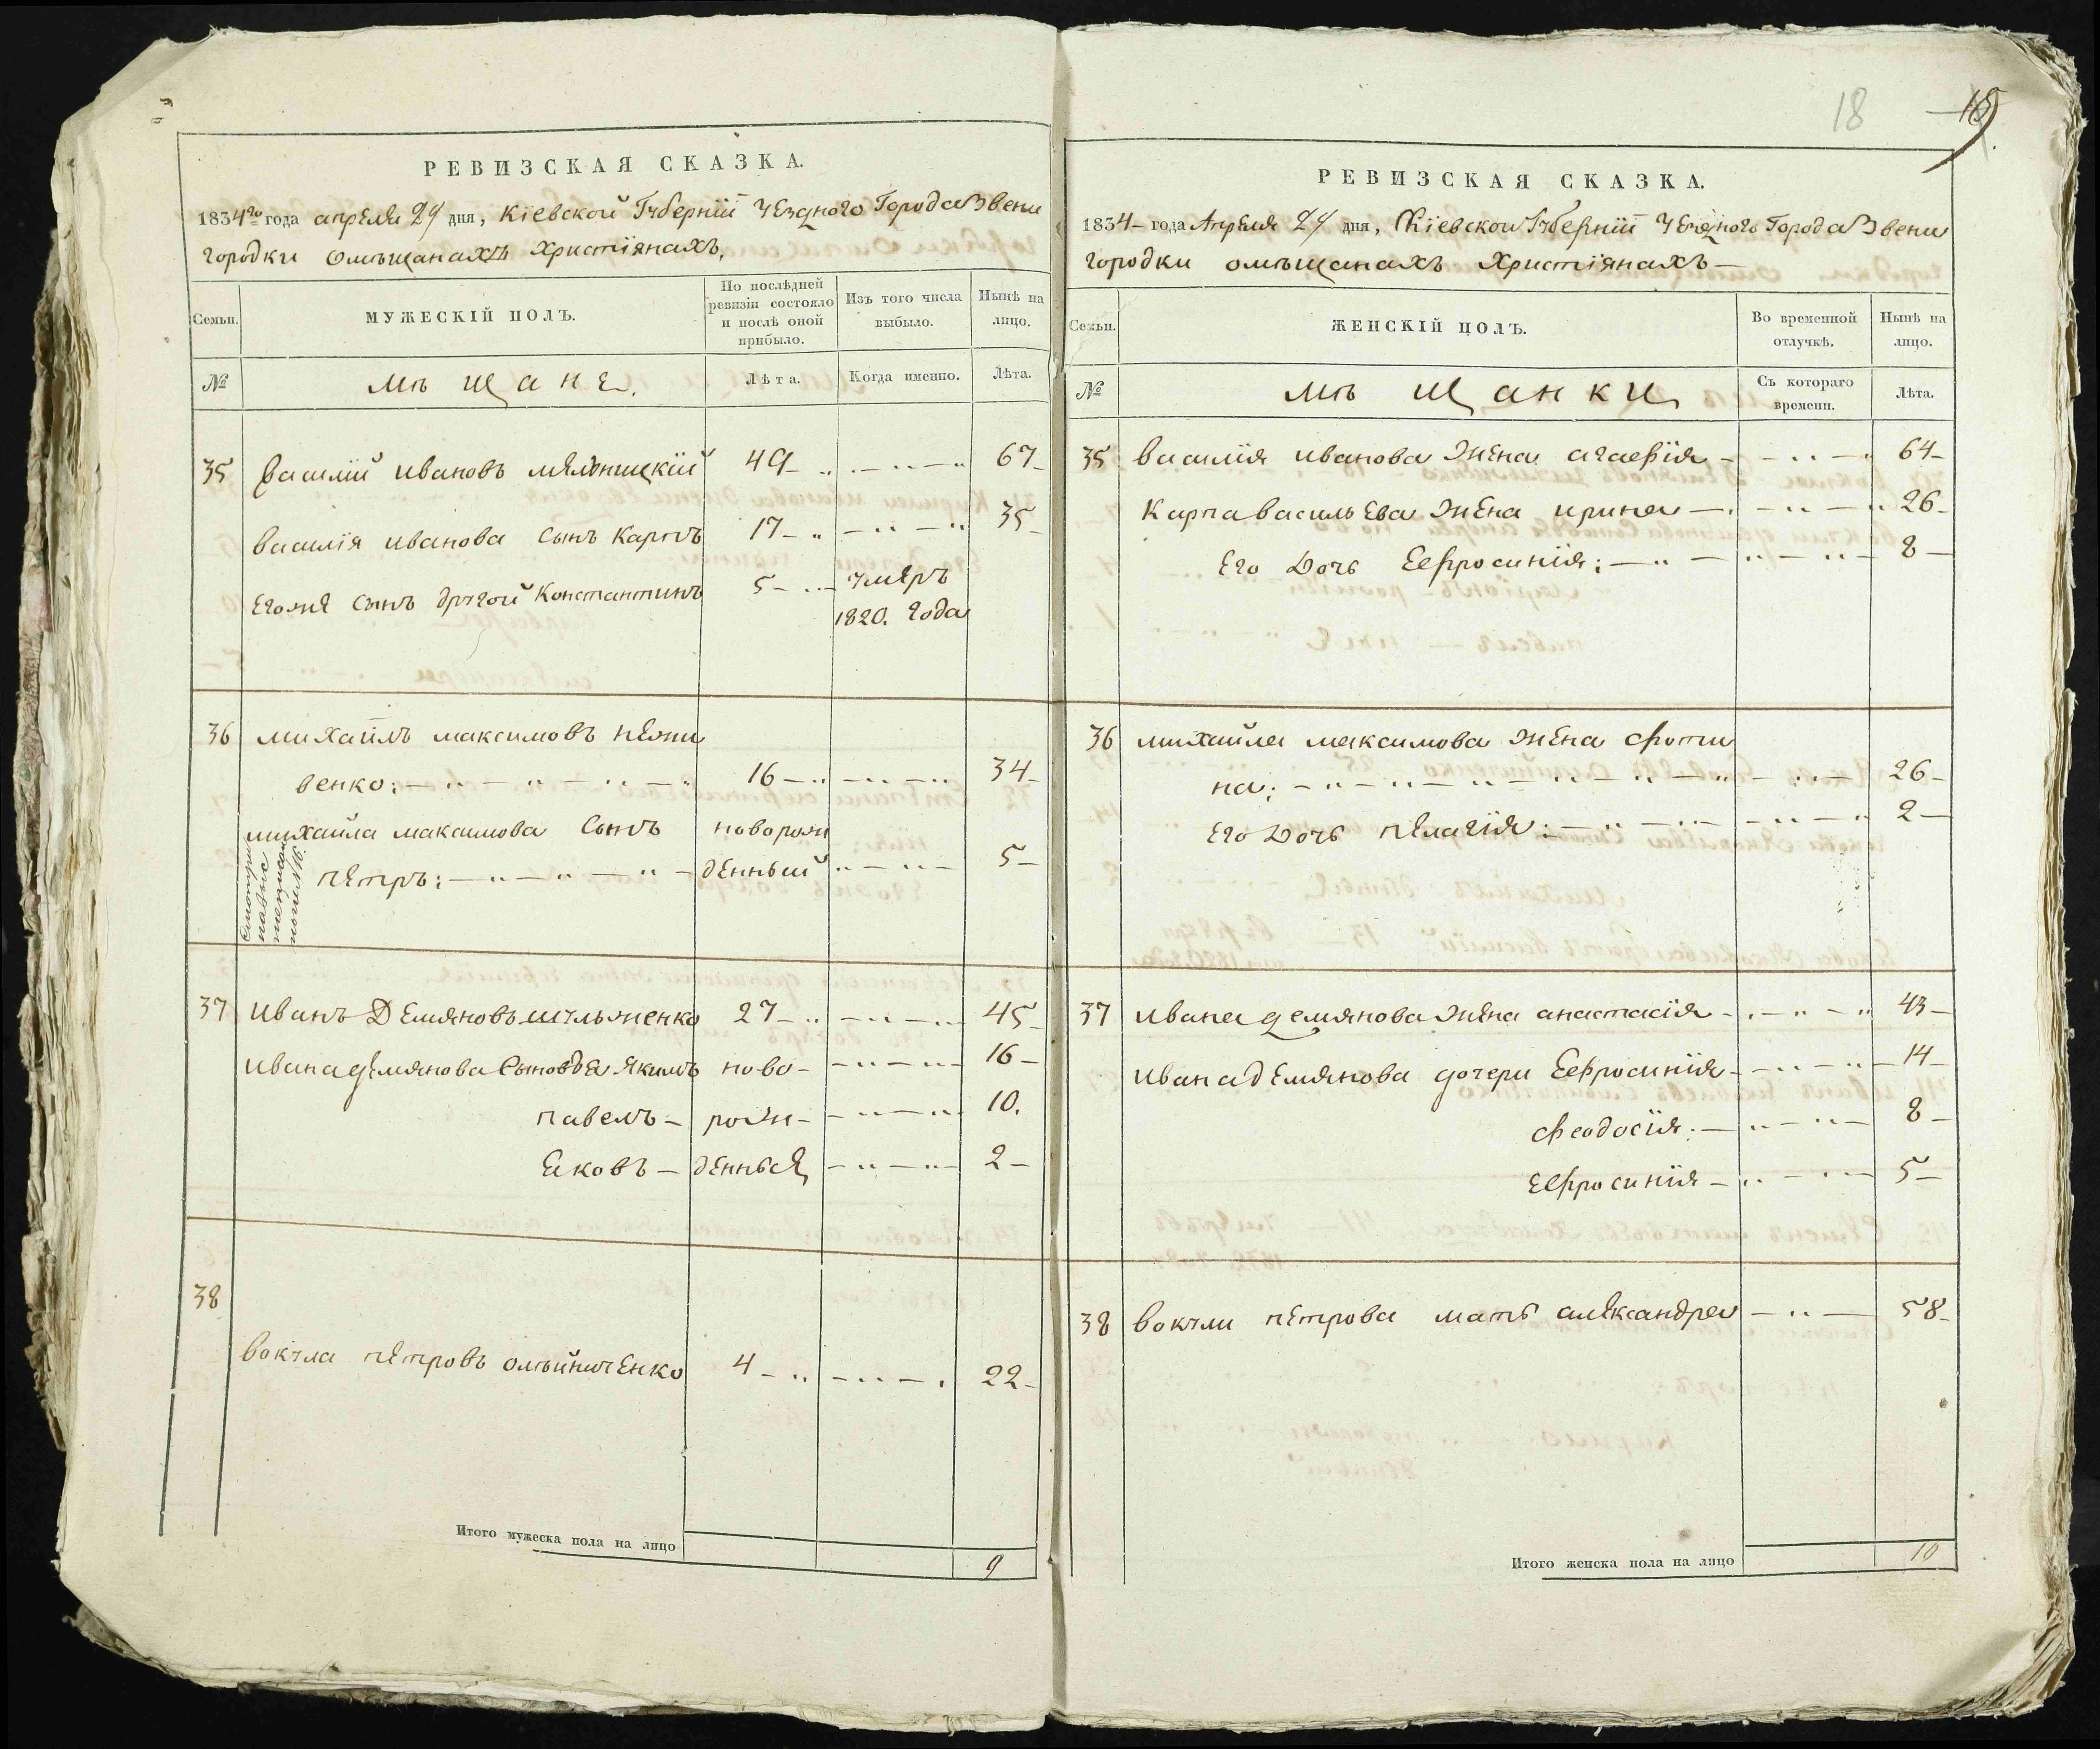 РЕВИЗСКАЯ СКАЗКА.
1834го года апреля 29 дня, Кіевской Губерніи Уезднаго Города Звени
городки омѣщанахъ христіянахъ,
Семьи.
МУЖЕСКІЙ ПОЛЪ.
По послѣдней
ревизіи состояло
и послѣ оной
прибыло.
Изъ того числа
выбыло.
Нынѣ на
лицо.
№
мѣщане.
Лѣта.
Когда именно.
Лѣта.
35 василій ивановъ мельницкій 49 67
василія иванова сынъ карпъ 17 35
Егоже сынъ другой Константинъ 5 умеръ
1820. года
36 михаилъ максимовъ нежи
венко: 16 34
михаила максимова сынъ новорож
петръ: денный 5
37 иванъ Демяновъ шульженко 27 45
ивана демянова сыновья якимъ ново- 16
павелъ рож- 10.
Яковъ денные 2
38
вокула петровъ олѣйниченко 4 22
Итого мужеска пола на лицо 9
18
РЕВИЗСКАЯ СКАЗКА.
1834 года Апреля 29 дня, Кіевской Губерніи Уезднаго Города Звени
городки омѣщанахъ христіянахъ
Семьи.
ЖЕНСКІЙ ПОЛЪ.
Во временной
отлучкѣ.
Нынѣ на
лицо.
№
мѣщанки
Съ котораго
времени.
Лѣта.
35 василія иванова жена агафія 64
карпа васильева жена ирина 26
Его дочь Ефросинія: 8
36 михаила максимова жена фоти
на: 26
Его дочь пелагія: 2
37 ивана демянова жена анастасія 43
ивана демянова дочери Ефросинія 14
феодосія: 8
Ефросинія 5
38 вокули петрова мать александра 58
Итого женска пола на лицо 10